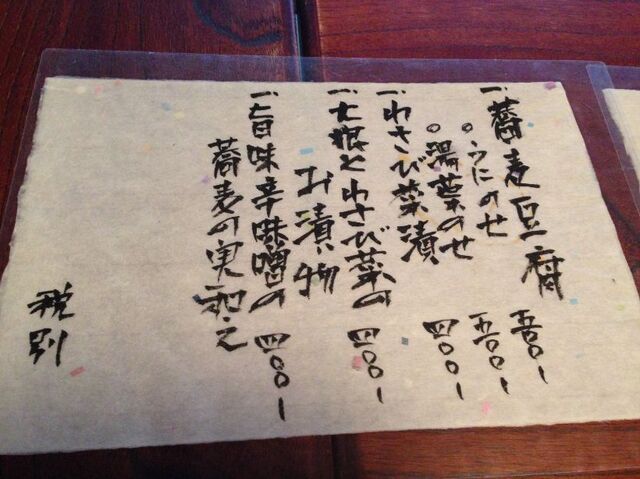 一、蕎麦豆腐
○うにのせ 五〇〇ー
○湯葉のせ 五〇〇ー
一、わさび菜漬 四〇〇ー
一、大根とわさび菜の 四〇〇ー
お漬物
一、旨味辛味噌の 四〇〇ー
蕎麦の実和え
税別